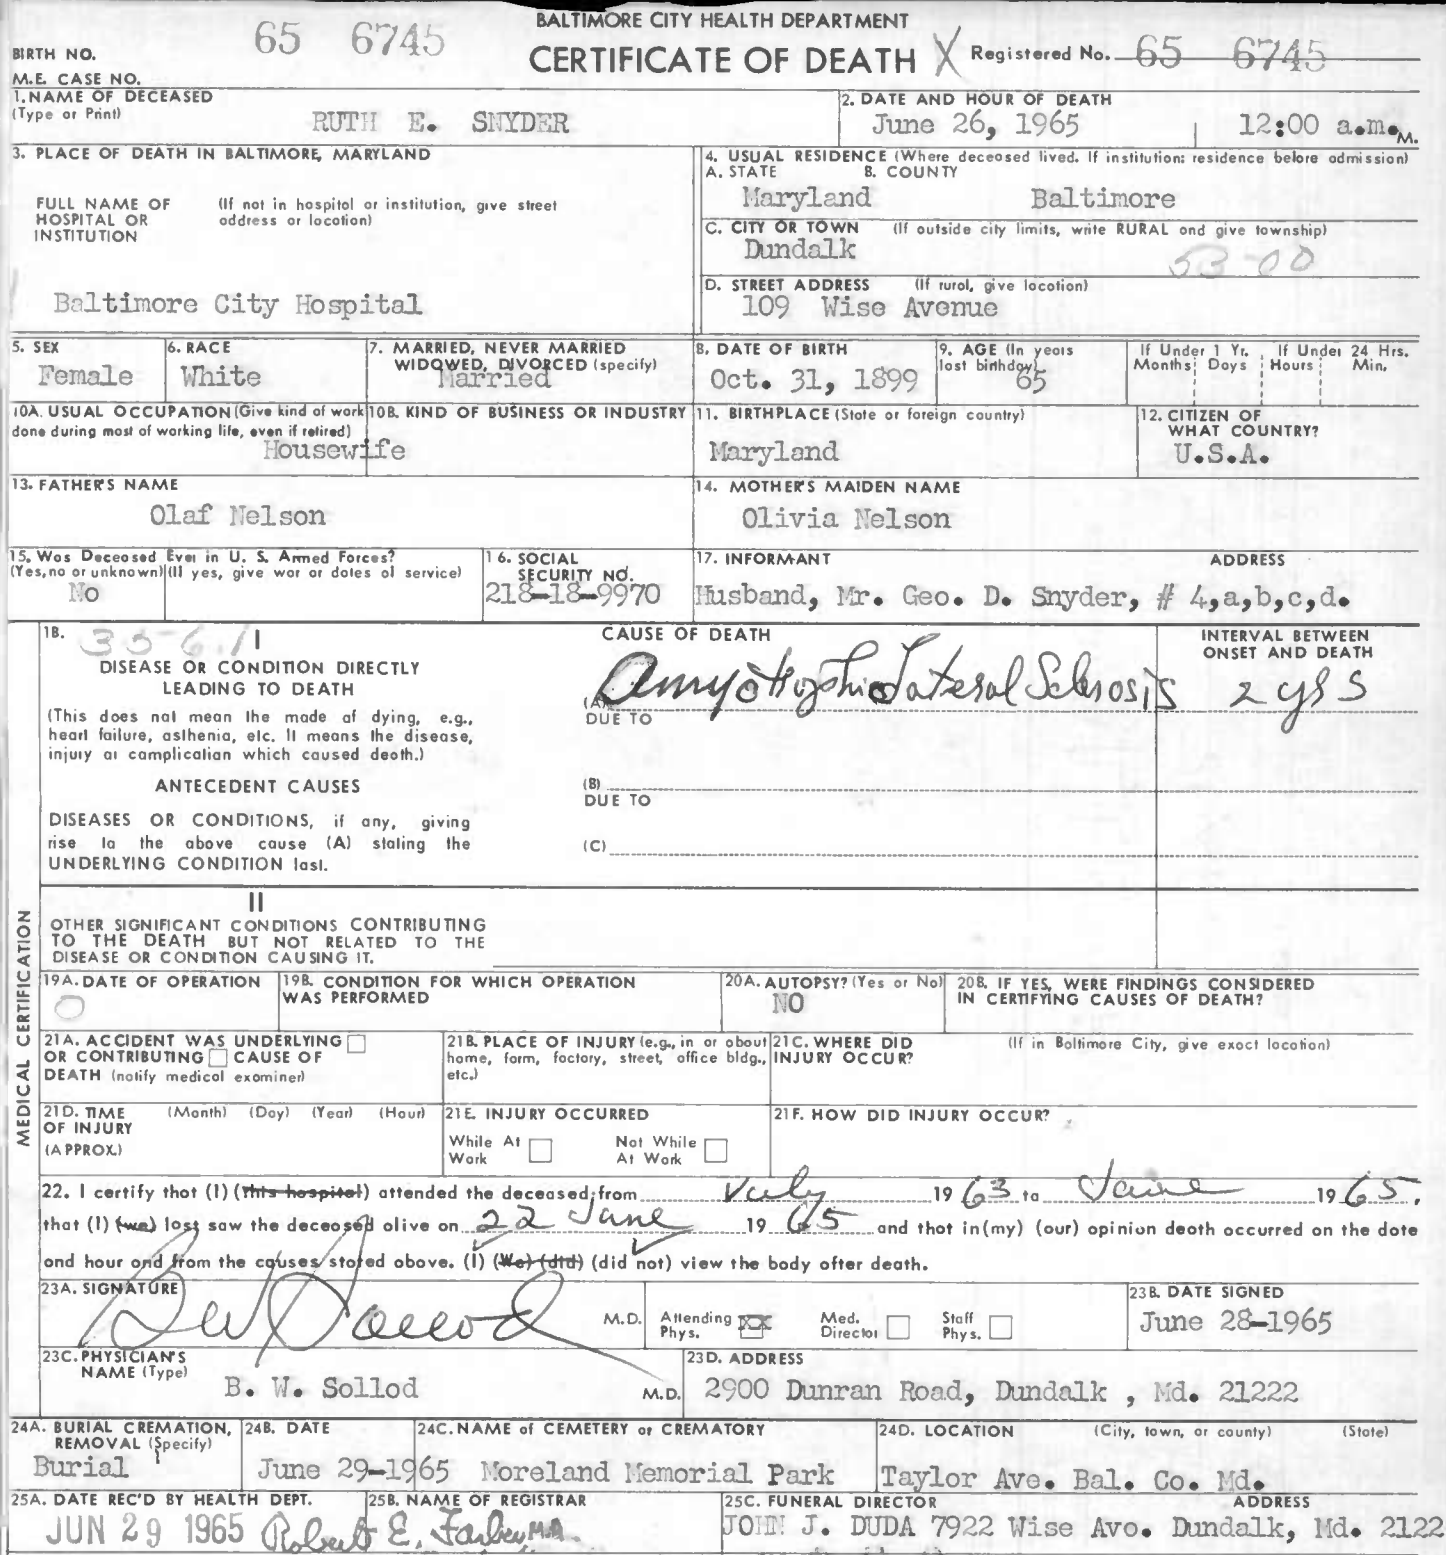 BALTIMORE CITY HEALTH DEPARTMENT
65 6745
BIRTH NO.
CERTIFICATE OF DEATH X Registered No. 65 6745
M.E. CASE NO.
1. NAME OF DECEASED
(Type or Print)
RUTH E. SNYDER
2. DATE AND HOUR OF DEATH
June 26, 1965 12:00 a.m. M.
3. PLACE OF DEATH IN BALTIMORE, MARYLAND
FULL NAME OF HOSPITAL OR INSTITUTION
(If not in hospital or institution, give street address or location)
Baltimore City Hospital
4. USUAL RESIDENCE (Where deceased lived. If institution: residence before admission)
A. STATE B. COUNTY
Maryland Baltimore
C. CITY OR TOWN (If outside city limits, write RURAL and give township)
Dundalk
53-00
D. STREET ADDRESS (If rural, give location)
109 Wise Avenue
5. SEX
Female
6. RACE
White
7. MARRIED, NEVER MARRIED
WIDOWED, DIVORCED (specify)
Married
8. DATE OF BIRTH
Oct. 31, 1899
9. AGE (In years last birthday)
65
If Under 1 Yr. Months Days
If Under 24 Hrs. Hours Min.
10A. USUAL OCCUPATION (Give kind of work
done during most of working life, even if retired)
Housewife
10B. KIND OF BUSINESS OR INDUSTRY
11. BIRTHPLACE (State or foreign country)
Maryland
12. CITIZEN OF
WHAT COUNTRY?
U.S.A.
13. FATHER'S NAME
Olaf Nelson
14. MOTHER'S MAIDEN NAME
Olivia Nelson
15. Was Deceased Ever in U. S. Armed Forces?
(Yes, no or unknown) (If yes, give war or dates of service)
No
16. SOCIAL
SECURITY NO.
218-18-9970
17. INFORMANT ADDRESS
Husband, Mr. Geo. D. Snyder, # 4,a,b,c,d.
MEDICAL CERTIFICATION
18. 356.1 I
DISEASE OR CONDITION DIRECTLY
LEADING TO DEATH
(This does not mean the mode of dying, e.g.,
heart failure, asthenia, etc. It means the disease,
injury or complication which caused death.)
CAUSE OF DEATH
INTERVAL BETWEEN
ONSET AND DEATH
(A) Amyotrophic Lateral Sclerosis 2 yrs
DUE TO
ANTECEDENT CAUSES
(B)
DUE TO
DISEASES OR CONDITIONS, if any, giving
rise to the above cause (A) stating the
UNDERLYING CONDITION last.
(C)
II
OTHER SIGNIFICANT CONDITIONS CONTRIBUTING
TO THE DEATH BUT NOT RELATED TO THE
DISEASE OR CONDITION CAUSING IT.
19A. DATE OF OPERATION
O
19B. CONDITION FOR WHICH OPERATION
WAS PERFORMED
20A. AUTOPSY? (Yes or No)
NO
20B. IF YES, WERE FINDINGS CONSIDERED
IN CERTIFYING CAUSES OF DEATH?
21A. ACCIDENT WAS UNDERLYING
OR CONTRIBUTING CAUSE OF
DEATH (notify medical examiner)
21B. PLACE OF INJURY (e.g., in or about
home, farm, factory, street, office bldg.,
etc.)
21C. WHERE DID
INJURY OCCUR?
(If in Baltimore City, give exact location)
21D. TIME (Month) (Day) (Year) (Hour)
OF INJURY
(APPROX.)
21E. INJURY OCCURRED
While At Work
Not While At Work
21F. HOW DID INJURY OCCUR?
22. I certify that (I) (this hospital) attended the deceased from July 1963 to June 1965,
that (I) (we) last saw the deceased alive on 22 June 1965 and that in (my) (our) opinion death occurred on the date
and hour and from the causes stated above. (I) (We) (did) (did not) view the body after death.
23A. SIGNATURE
BW Sollod M.D.
Attending Phys. XXX
Med. Director
Staff Phys.
23B. DATE SIGNED
June 28-1965
23C. PHYSICIAN'S
NAME (Type)
B. W. Sollod M.D.
23D. ADDRESS
2900 Dunran Road, Dundalk , Md. 21222
24A. BURIAL CREMATION,
REMOVAL (Specify)
Burial
24B. DATE
June 29-1965
24C. NAME of CEMETERY or CREMATORY
Moreland Memorial Park
24D. LOCATION (City, town, or county) (State)
Taylor Ave. Bal. Co. Md.
25A. DATE REC'D BY HEALTH DEPT.
JUN 29 1965
25B. NAME OF REGISTRAR
Robert E. Farber, M.D.
25C. FUNERAL DIRECTOR ADDRESS
JOHN J. DUDA 7922 Wise Ave. Dundalk, Md. 2122